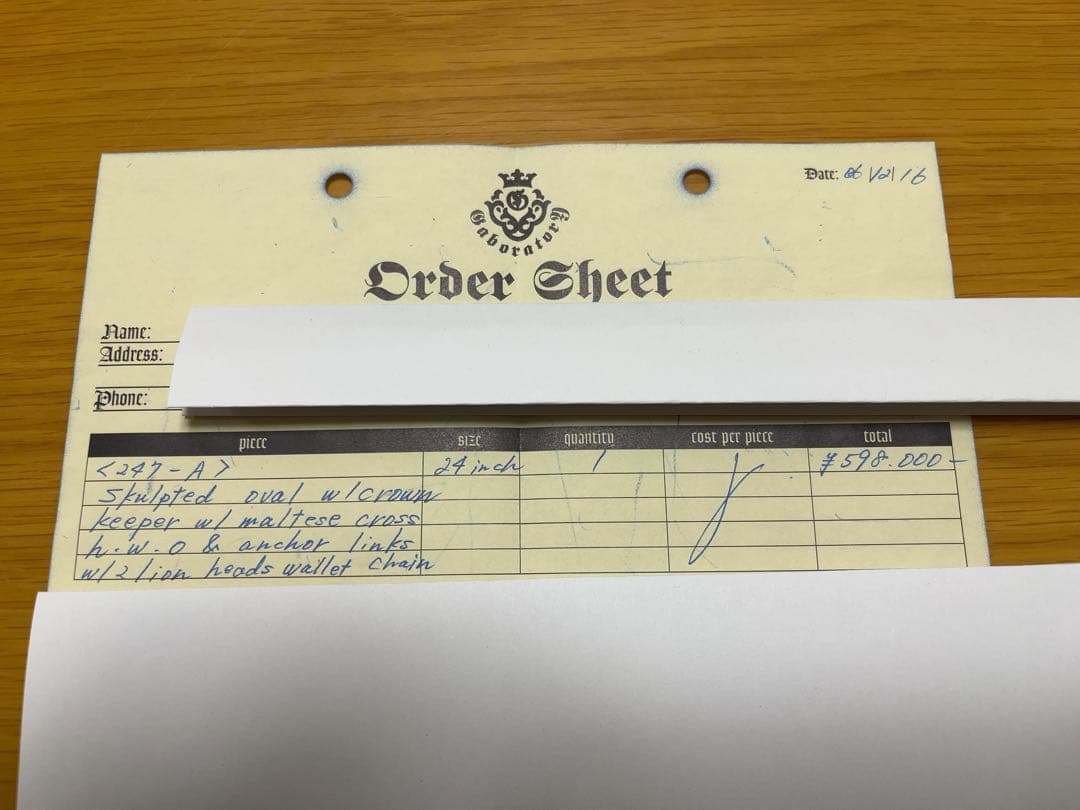 G
Gaboratory
Date: 06/12/16
Order Sheet
Name:
Address:
Phone:
piece size quantity cost per piece total
<247-A> 24 inch 1 ¥598.000-
Skulpted oval w/crown
keeper w/ maltese cross
h.w.o & anchor links
w/2 lion heads wallet chain